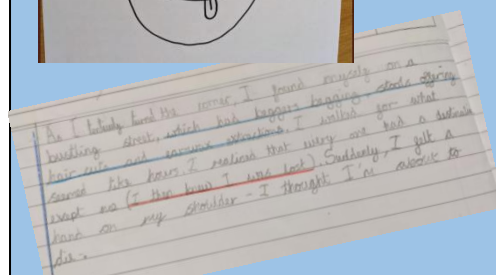 As I turned the corner, I found myself on a
bustling street, which had beggars begging, stools offering
hair cuts and earwax extractions, I walked for what
seemed like hours. I realised that every one had a destination
exept me (I then knew I was lost). Suddenly, I felt a
hand on my shoulder - I thought I'm about to
die.